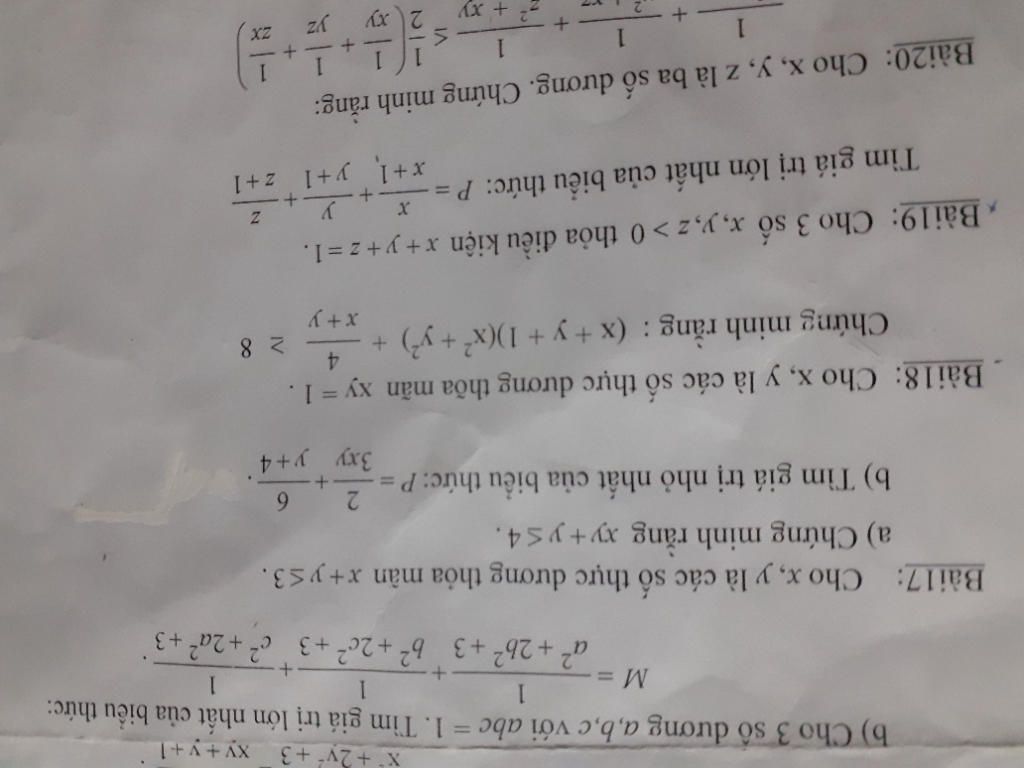 x² + 2y² + 3 xy + y + 1
b) Cho 3 số dương a,b,c với abc = 1. Tìm giá trị lớn nhất của biểu thức:
M = 1/(a² + 2b² + 3) + 1/(b² + 2c² + 3) + 1/(c² + 2a² + 3).
Bài17: Cho x, y là các số thực dương thỏa mãn x + y ≤ 3.
a) Chứng minh rằng xy + y ≤ 4.
b) Tìm giá trị nhỏ nhất của biểu thức: P = 2/(3xy) + 6/(y + 4).
Bài18: Cho x, y là các số thực dương thỏa mãn xy = 1.
Chứng minh rằng : (x + y + 1)(x² + y²) + 4/(x + y) ≥ 8
Bài19: Cho 3 số x, y, z > 0 thỏa điều kiện x + y + z = 1.
Tìm giá trị lớn nhất của biểu thức: P = x/(x + 1) + y/(y + 1) + z/(z + 1)
Bài20: Cho x, y, z là ba số dương. Chứng minh rằng:
1 + 1 + 1/(z² + xy) ≤ 1/2 (1/xy + 1/yz + 1/zx)